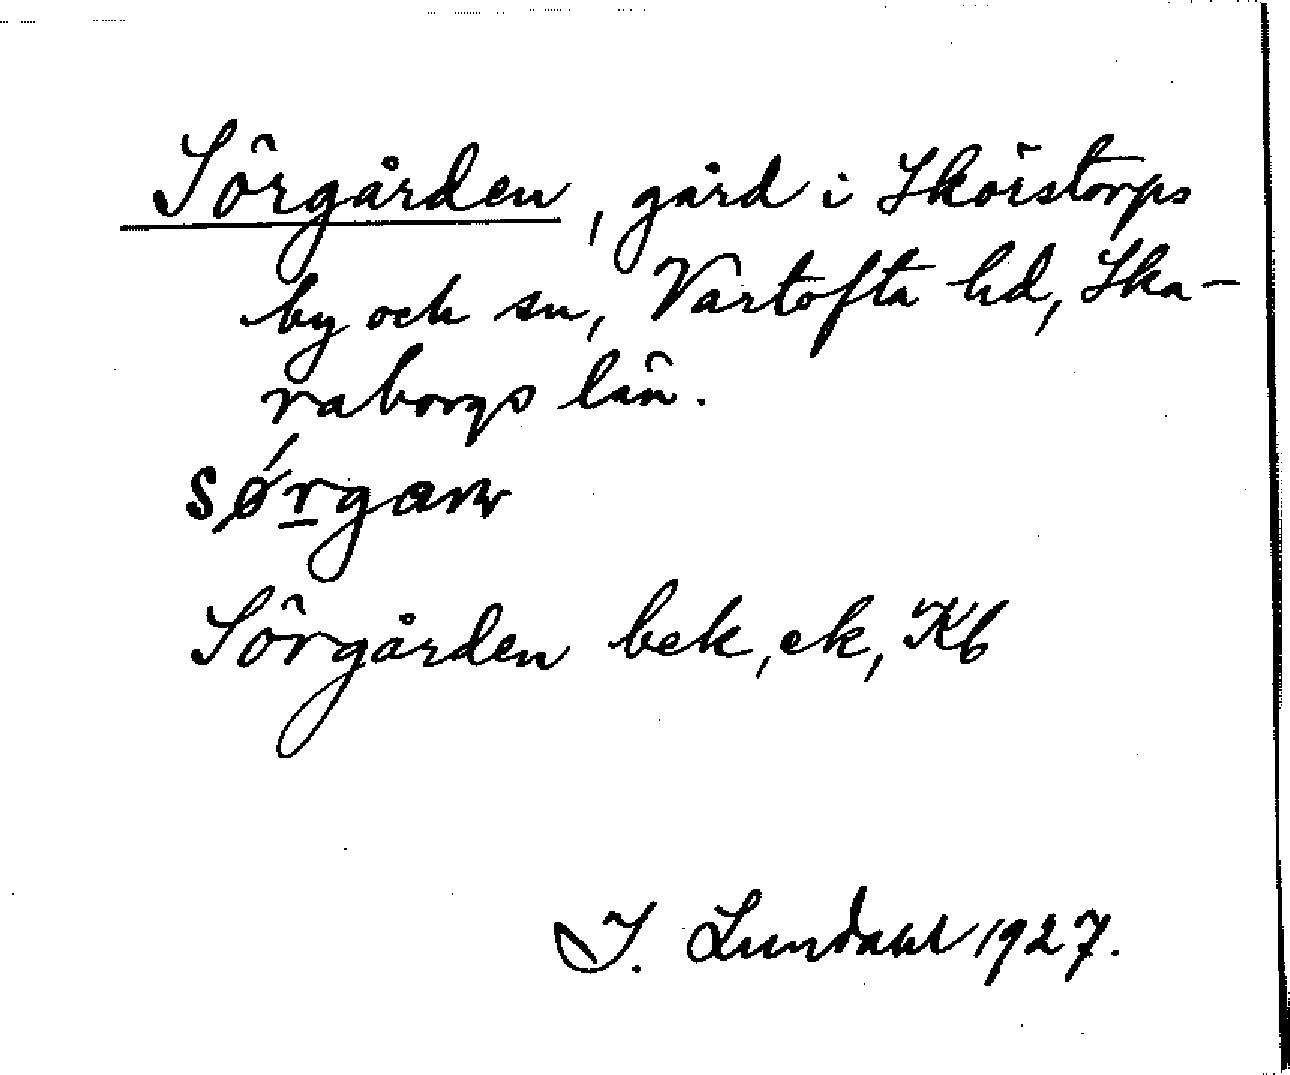 Sörgården, gård i Skörstorps
by och sn, Vartofta hd, Ska-
raborgs län.
Sörgården bek, ek, Kb
I. Lundahl 1927.